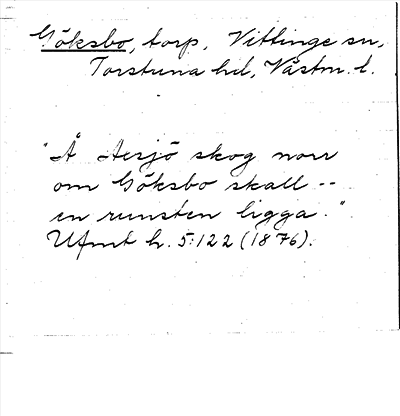 Göksbo, torp, Vittinge sn,
Torstuna hd, Västm. l.
"Å Aesjö skog norr
om Göksbo skall --
en runsten ligga."
Ufmt h. 5:122 (1876).